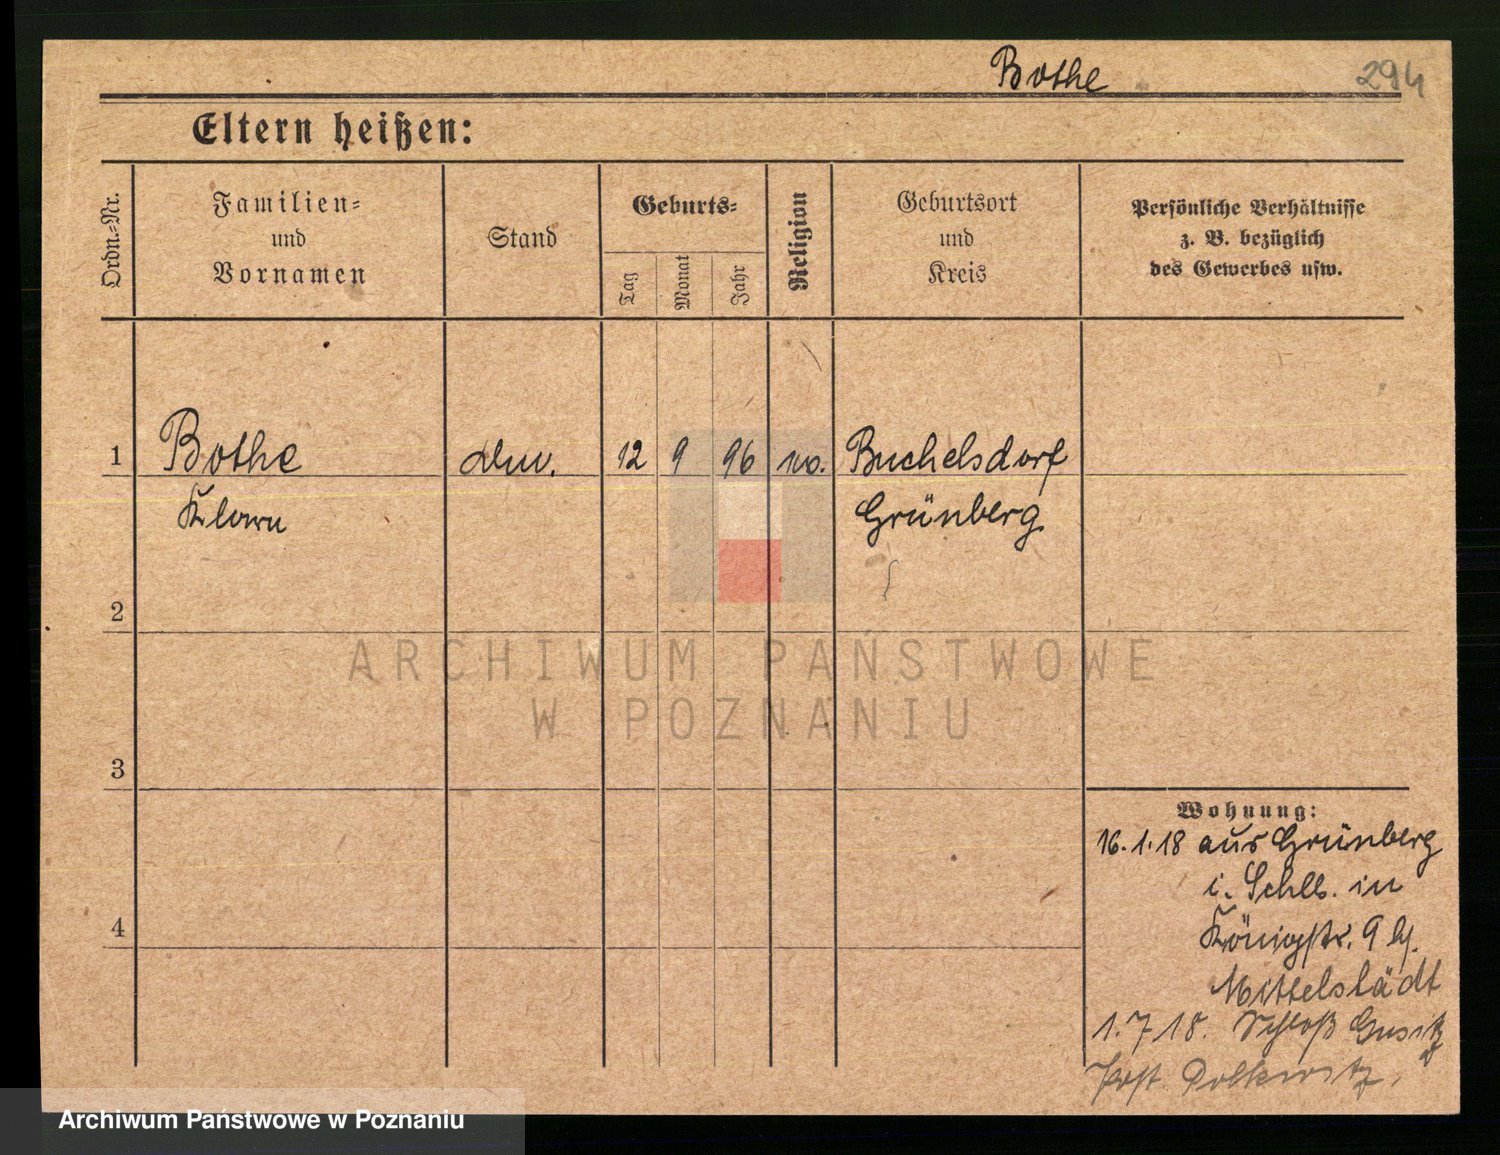 Bothe 294
Eltern heißen:
Ordn.-Nr.
Familien-
und
Vornamen
Stand
Geburts-
Tag
Monat
Jahr
Religion
Geburtsort
und
Kreis
Persönliche Verhältnisse
z. B. bezüglich
des Gewerbes usw.
1 Bothe 12 9 96 Buchelsdorf
Klara Grünberg
2
ARCHIWUM PAŃSTWOWE
W POZNANIU
3
Wohnung:
16.1.18 aus Grünberg
i. Schles. in
4
Königstr. 9 b/.
Mittelstädt
1.7.18. Schloß
Post Polkwitz,
Archiwum Państwowe w Poznaniu